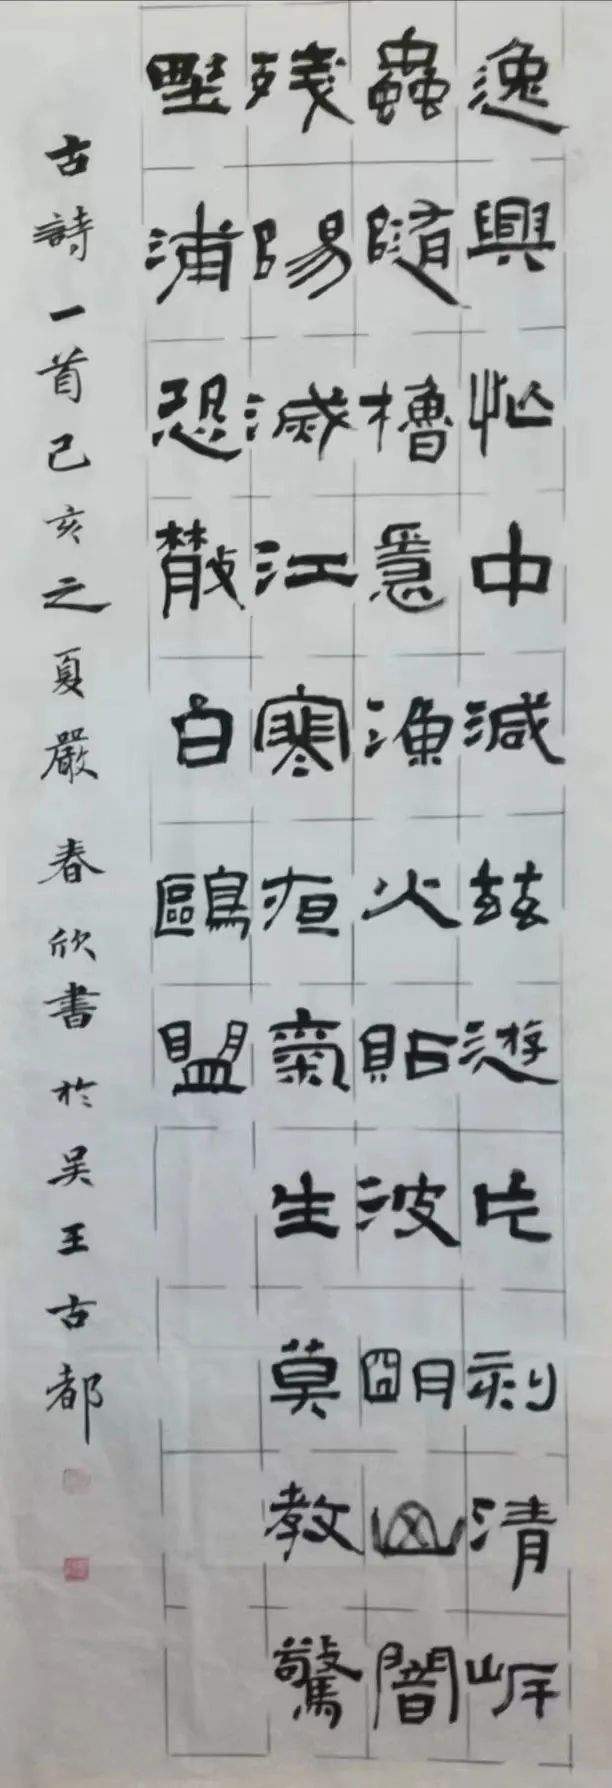 逸興忙中減茲遊片刻清岸
蟲隨櫓㥯漁火貼波明山闇
殘陽滅江寒夜氣生莫教驚
野浦恐散白鷗盟
古詩一首己亥之夏嚴春欣書於吳王古都